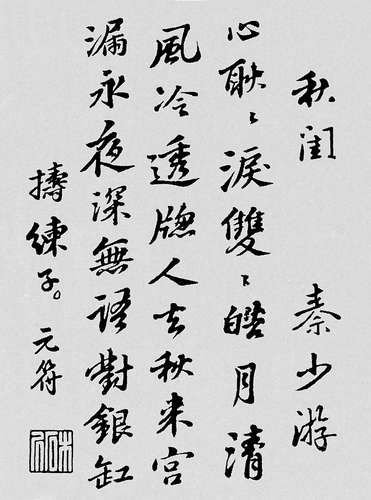 秋閨　秦少游
心耿々淚雙々皓月清
風冷透牕人去秋来宮
漏永夜深無語對銀缸
擣練子。元符